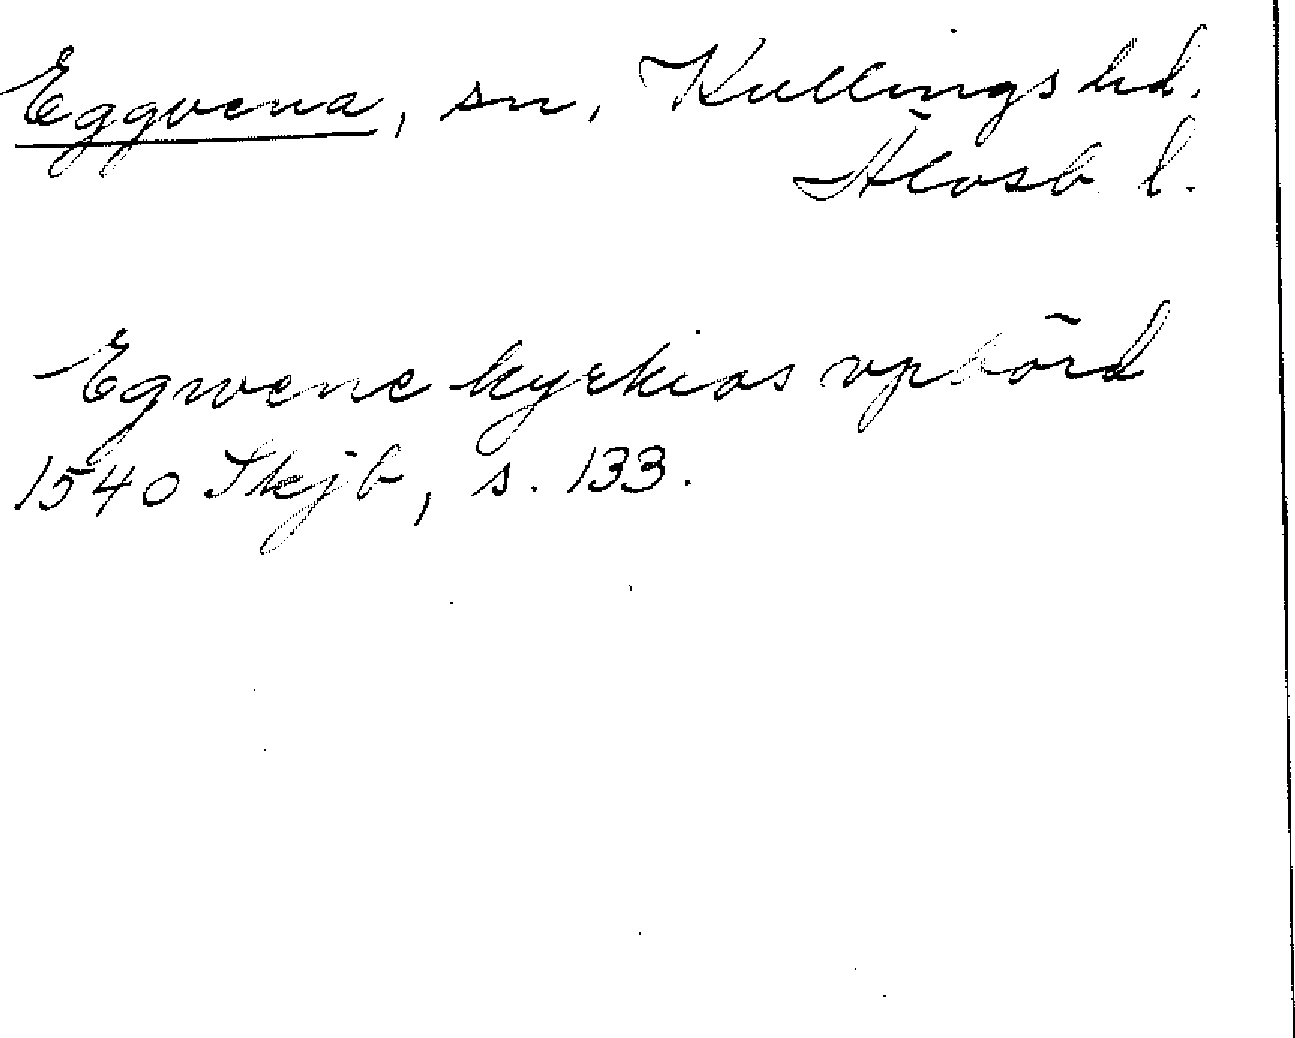 Eggvena, sn, Kullings hd.
Älvsb l.
Egwene kyrkios vpbörd
1540 Skjb, s. 133.